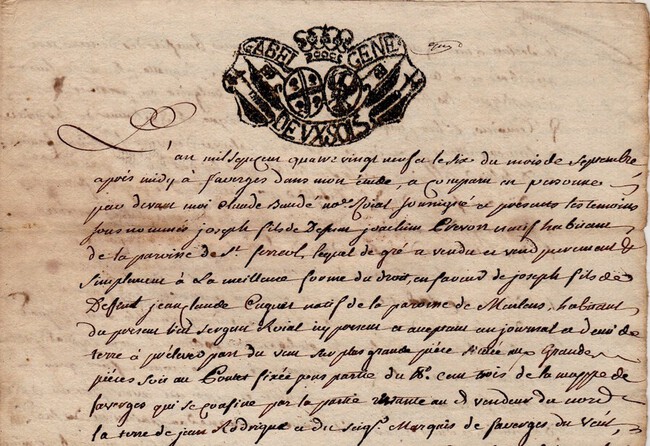 GABEL GENE
DEUX SOLS
L'an mil sept cent quatre vingt neuf et le six du mois de septembre
après midy à faverges dans mon étude, a comparu en personne
par devant moi Claude no.re Roial soussigné et présents les témoins
sous nommés joseph fils de Deffunt joachim natif habitant
de la paroisse de St. ferreol, lequel de gré a vendu et vend purement &
simplement à la meilleure forme du droit, en faveur de joseph fils de
Deffunt jean claude natif de la paroisse de habitant
du present lieu sergent Roial icy present et acceptant un journal et demi de
terre à prélever part du vent sur plus grande pièce située aux Grandes
pièces sois au fixée pour partie du No. cent trois de la mappe de
faverges qui se confine par la partie restante au d. vendeur du nord
la terre de jean Rodrigue et du seig.r Marquis de faverges du vent,